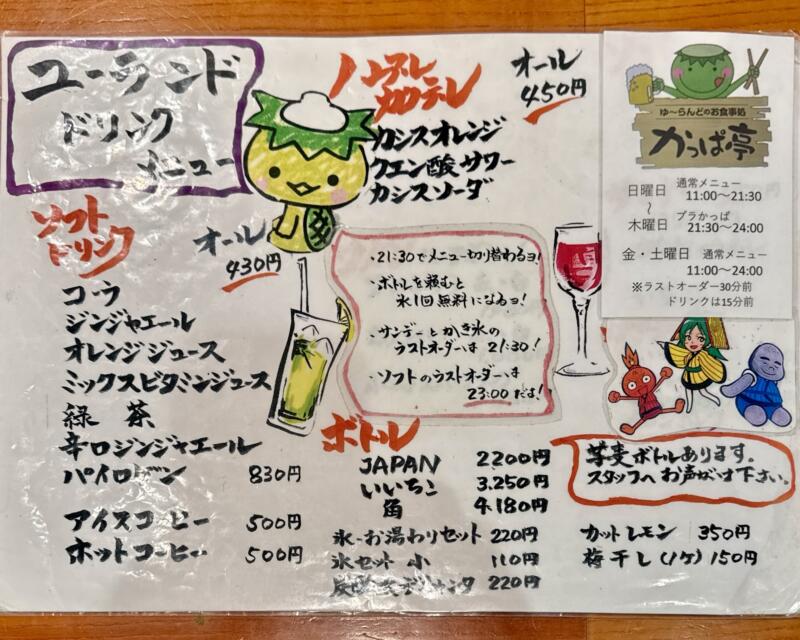 ユーランド
ドリンク
メニュー
ソフト
ドリンク
オール
430円
コーラ
ジンジャエール
オレンジジュース
ミックスビタミンジュース
緑茶
辛口ジンジャエール
パイロゲン 830円
アイスコーヒー 500円
ホットコーヒー 500円
オール
450円
カシスオレンジ
クエン酸サワー
カシスソーダ
・21:30でメニュー切り替わるヨ!
・ボトルを頼むと
氷1回無料になるよ!
・サンデーとかき氷の
ラストオーダーは 21:30!
・ソフトのラストオーダーは
23:00だよ!
ボトル
JAPAN 2200円
いいちこ 3.250円
角 4.180円
氷・お湯わりセット 220円
氷セット 小 110円
220円
ゆ〜らんどのお食事処
かっぱ亭
日曜日 通常メニュー
11:00〜21:30
〜
木曜日 プラかっぱ
21:30〜24:00
金・土曜日 通常メニュー
11:00〜24:00
※ラストオーダー30分前
ドリンクは15分前
芋麦ボトルあります。
スタッフへお声がけ下さい。
カットレモン 350円
梅干し(1ケ) 150円